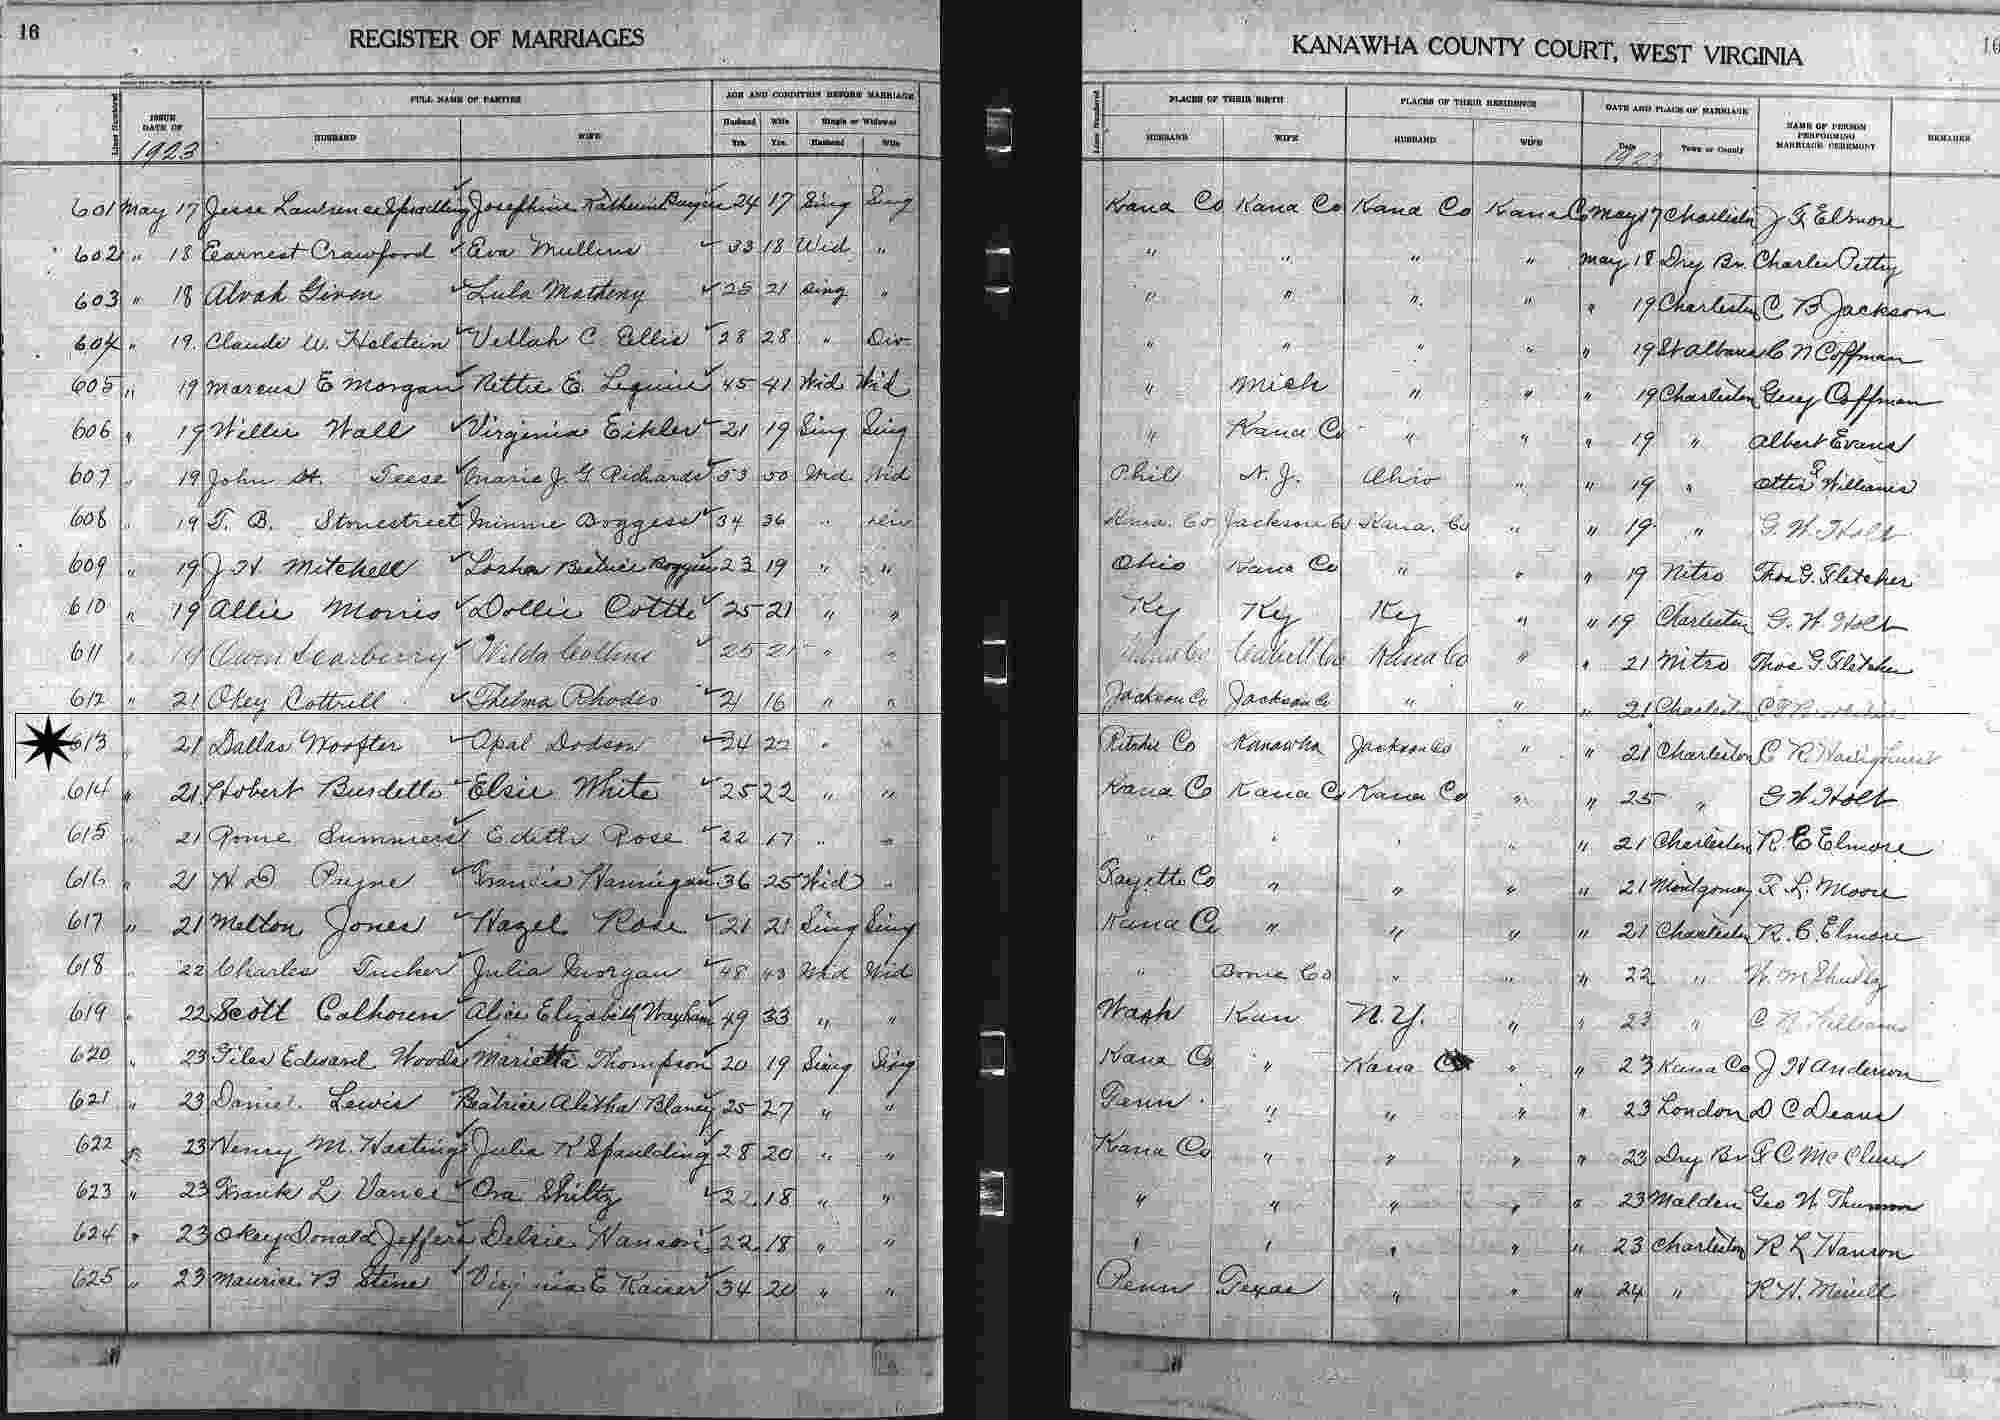 16
REGISTER OF MARRIAGES
KANAWHA COUNTY COURT, WEST VIRGINIA
Lines Numbered
ISSUE DATE OF
1923
FULL NAME OF PARTIES
HUSBAND WIFE
AGE AND CONDITION BEFORE MARRIAGE
Husband Wife Single or Widowed
Yrs. Yrs. Husband Wife
Lines Numbered
PLACES OF THEIR BIRTH PLACES OF THEIR RESIDENCE DATE AND PLACE OF MARRIAGE
HUSBAND WIFE HUSBAND WIFE Date Town or County
1923
NAME OF PERSON PERFORMING MARRIAGE CEREMONY
REMARKS
601 May 17 Jesse Lawrence Josephine Katherine 24 17 Sing Sing Kana Co Kana Co Kana Co Kana Co May 17 Charleston J F Elmore
602 " 18 Earnest Crawford Eva Mullins 33 18 Wid " " " " " May 18 Dry Br. Charles Petty
603 " 18 Alvah Given Lula Matheny 25 21 Sing " " " " " " 19 Charleston C B Jackson
604 " 19 Claude W. Holstein Vellah C. Ellis 28 28 " Div " " " " " 19 St Albans C N Coffman
605 " 19 Marcus E Morgan Nettie E. 45 41 Wid Wid " Mich " " " 19 Charleston Guy Coffman
606 " 19 Willie Wall Virginia Eikler 21 19 Sing Sing " Kana Co " " " 19 " Albert Evans
607 " 19 John H. Teese Marie J. G Richards 53 50 Wid Wid Phil N. J. Ohio " " 19 " Williams
608 " 19 T. B. Stonestreet Minnie Boggess 34 36 " Div Kana. Co Jackson Co Kana. Co " " 19 " G. W. Holt
609 " 19 J H Mitchell Beatrice 23 19 " " Ohio Kana Co " " " 19 Nitro Thos G. Fletcher
610 " 19 Allie Morris Dollie Cottle 25 21 " " Ky Ky Ky " " 19 Charleston G. W. Holt
611 " 19 Owen Scarberry Wilda Collins 25 21 " " Kana Co Cabell Co Kana Co " " 21 Nitro Thos G. Fletcher
612 " 21 Okey Cottrell Thelma Rhodes 21 16 " " Jackson Co Jackson Co " " " 21 Charleston
613 " 21 Dallas Woofter Opal Dodson 24 22 " " Ritchie Co Kanawha Jackson Co " " 21 Charleston C R
614 " 21 Hobert Burdette Elsie White 25 22 " " Kana Co Kana Co Kana Co " " 25 " G W Holt
615 " 21 Rome Summers Edith Rose 22 17 " " " " " " " 21 Charleston R. C Elmore
616 " 21 H D Payne Francis Hannigan 36 25 Wid " Fayette Co " " " " 21 Montgomery F. L. Moore
617 " 21 Melton Jones Hazel Rose 21 21 Sing Sing Kana Co " " " " 21 Charleston R. C. Elmore
618 " 22 Charles Tucker Julia Morgan 48 43 Wid Wid " Boone Co " " " 22 "
619 " 22 Scott Calhoun Alice Elizabeth Waxham 49 33 " " Wash Kan N. Y. " " 23 " Williams
620 " 23 Giles Edward Woods Marietta Thompson 20 19 Sing Sing Kana Co " Kana Co " " 23 Kana Co J H Anderson
621 " 23 Daniel Lewis Beatrice Alitha Blaney 25 27 " " Tenn. " " " " 23 London D C Deans
622 " 23 Henry M. Hastings Julia K Spaulding 28 20 " " Kana Co " " " " 23 Dry Br F C McClure
623 " 23 Frank L Vance Ora Shiltz 22 18 " " " " " " " 23 Malden Geo W
624 " 23 Okey Donald Jeffers Delsie Hanson 22 18 " " " " " " " 23 Charleston R L Hanson
625 " 23 Maurice B Stine Virginia E Kaiser 34 20 " " Penn Texas " " " 24 " R H.